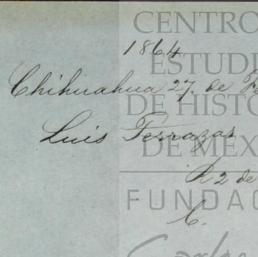 CENTRO
1864
ESTUDI
Chihuahua 27. de
DE HISTO
Luis Terrazas
DE MEX
2 de
FUNDAC
C.